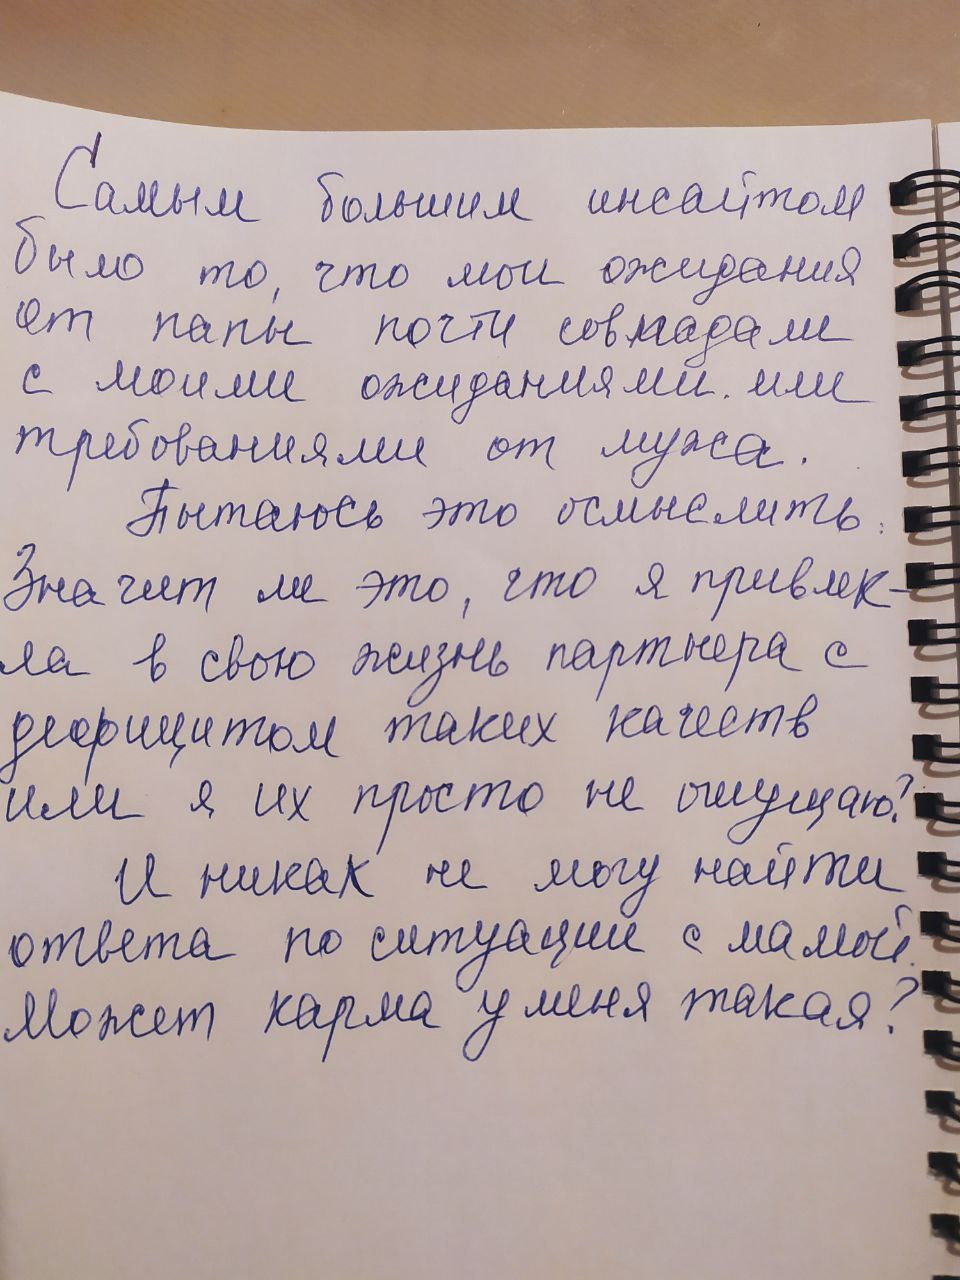 Самым большим инсайтом
было то, что мои ожидания
от папы почти совпадали
с моими ожиданиями. или
требованиями от мужа.
Пытаюсь это осмыслить.
Значит ли это, что я привлек-
ла в свою жизнь партнера с
дефицитом таких качеств
или я их просто не ощущаю?
И никак не могу найти
ответа по ситуации с мамой.
Может карма у меня такая?